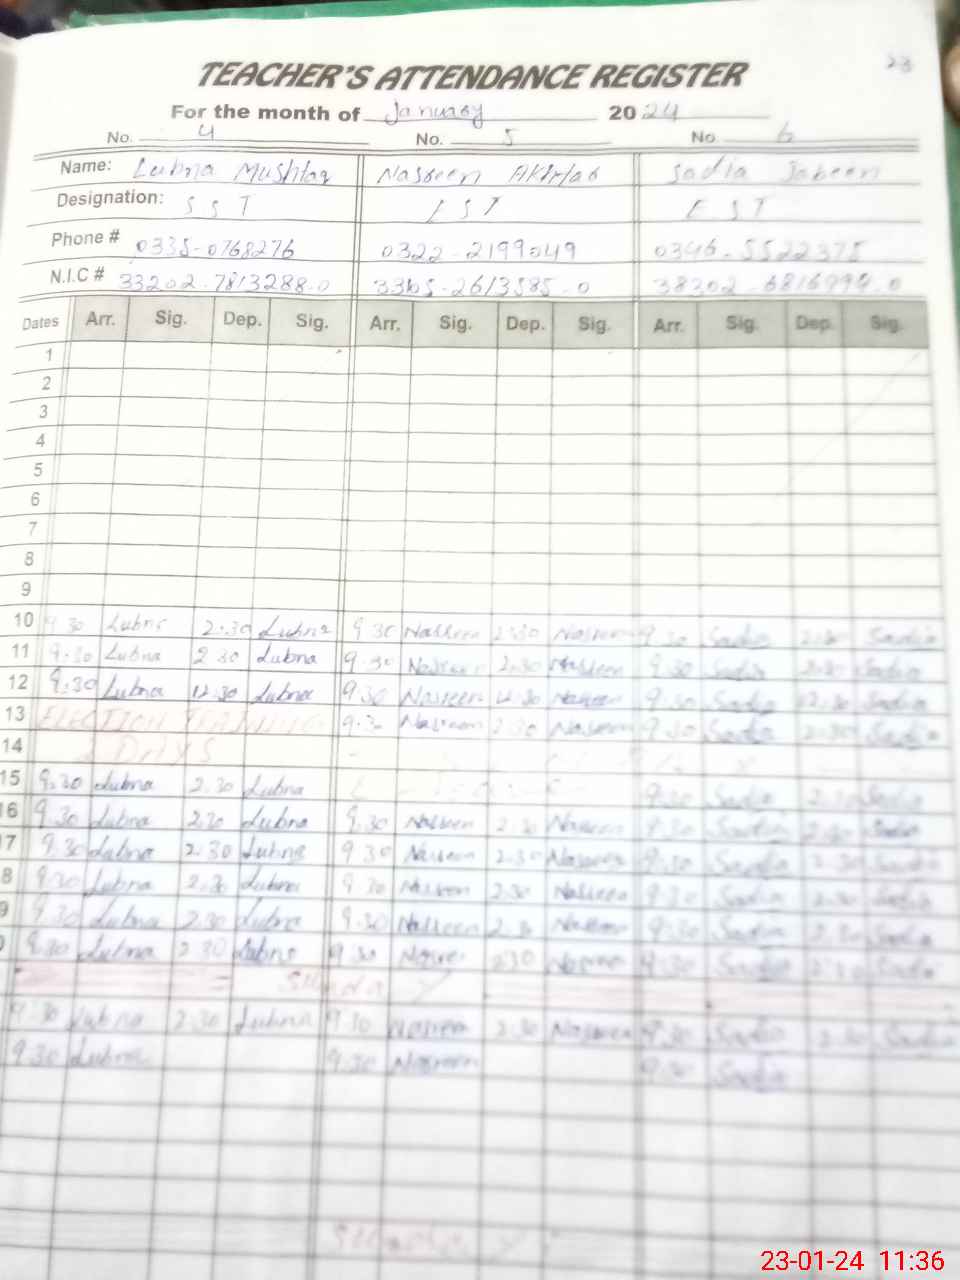 23
TEACHER'S ATTENDANCE REGISTER
For the month of January 2024
No. 4 No. 5 No 6
Name: Lubna Mushtaq Nasreen Akhtar Sadia Jabeen
Designation: SST EST EST
Phone # 0335-0768276 0322-2199049 0346-5522375
N.I.C # 33202-7813288-0 38302-6816994-0
Dates Arr. Sig. Dep. Sig. Arr. Sig. Dep. Sig. Arr. Sig. Dep. Sig.
1
2
3
4
5
6
7
8
9
10 9.30 Lubna 2.30 Lubna 9.30 Nasreen 2.30 Nasreen 9.30 Sadia 2.30 Sadia
11 9.30 Lubna 2.30 Lubna 9.30 Nasreen 2.30 Nasreen 9.30 Sadia 2.30 Sadia
12 9.30 Lubna 12.30 Lubna 9.30 Nasreen 12.30 Nasreen 9.30 Sadia 12.30 Sadia
13 ELECTION TRAINING 9.30 Nasreen 2.30 Nasreen 9.30 Sadia 2.30 Sadia
14 2 DAYS
15 9.30 Lubna 2.30 Lubna 9.30 Sadia 2.30 Sadia
16 9.30 Lubna 2.30 Lubna 9.30 Nasreen 2.30 Nasreen 9.30 Sadia 2.30 Sadia
7 9.30 Lubna 2.30 Lubna 9.30 Nasreen 2.30 Nasreen 9.30 Sadia 2.30 Sadia
8 9.30 Lubna 2.30 Lubna 9.30 Nasreen 2.30 Nasreen 9.30 Sadia 2.30 Sadia
9 9.30 Lubna 2.30 Lubna 9.30 Nasreen 2.30 Nasreen 9.30 Sadia 2.30 Sadia
9.30 Lubna 2.30 Lubna 9.30 2.30 9.30 Sadia 2.30 Sadia
Sunday
9.30 Lubna 2.30 Lubna 9.30 Nasreen 2.30 Nasreen 9.30 Sadia 2.30 Sadia
9.30 Lubna 9.30 Nasreen 9.30 Sadia
23-01-24 11:36